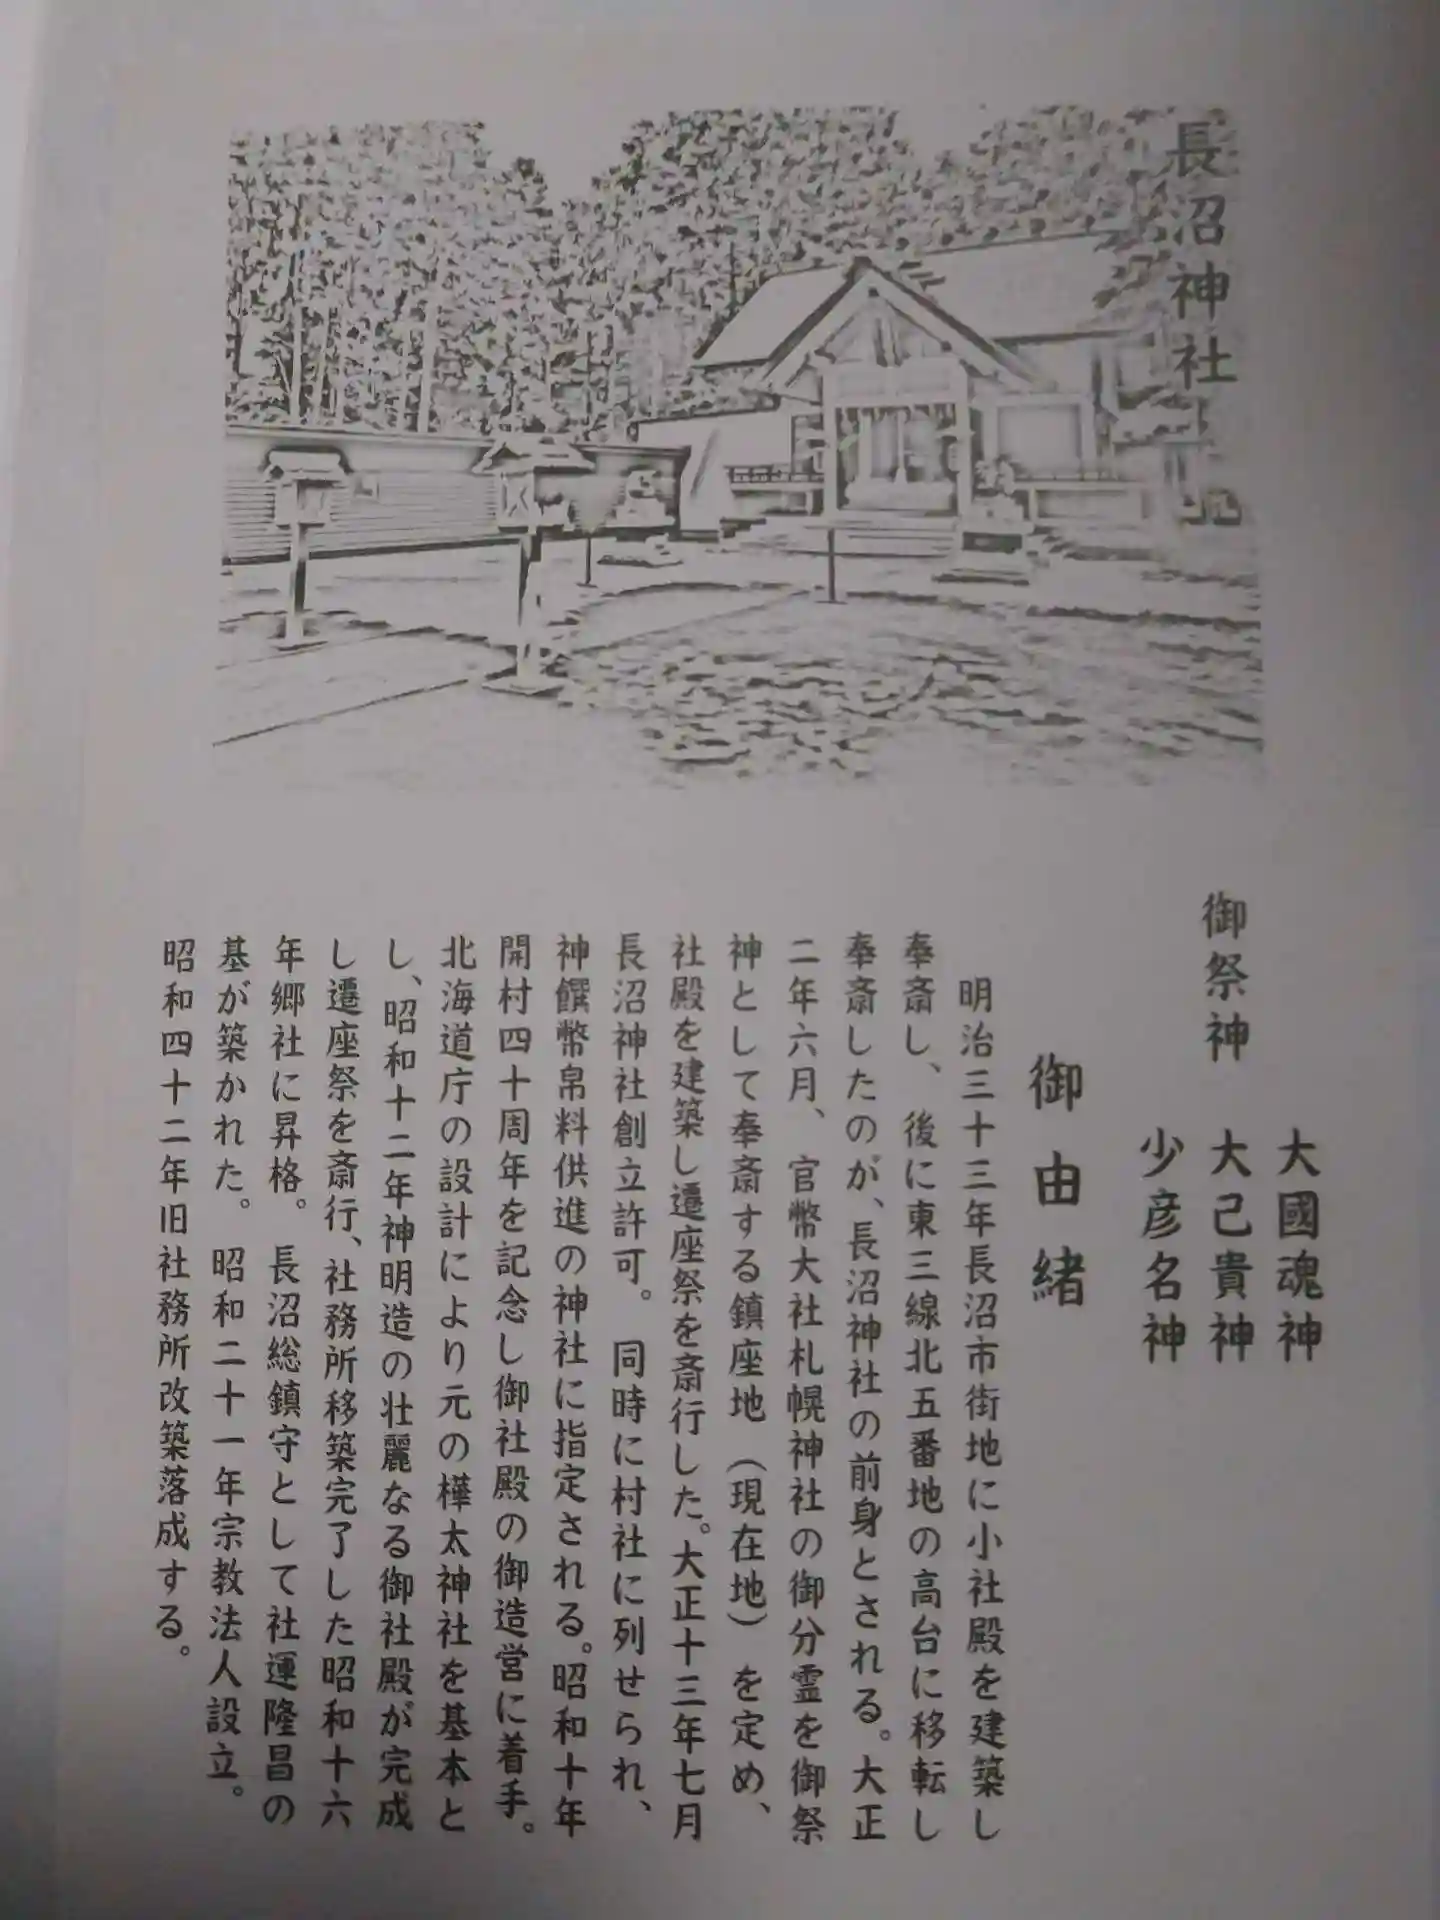 長沼神社
御祭神
大國魂神
大己貴神
少彦名神
御由緒
明治三十三年長沼市街地に小社殿を建築し
奉斎し、後に東三線北五番地の高台に移転し
奉斎したのが、長沼神社の前身とされる。大正
二年六月、官幣大社札幌神社の御分霊を御祭
神として奉斎する鎮座地（現在地）を定め、
社殿を建築し遷座祭を斎行した。大正十三年七月
長沼神社創立許可。同時に村社に列せられ、
神饌幣帛料供進の神社に指定される。昭和十年
開村四十周年を記念し御社殿の御造営に着手。
北海道庁の設計により元の樺太神社を基本と
し、昭和十二年神明造の壮麗なる御社殿が完成
し遷座祭を斎行、社務所移築完了した昭和十六
年郷社に昇格。長沼総鎮守として社運隆昌の
基が築かれた。昭和二十一年宗教法人設立。
昭和四十二年旧社務所改築落成する。